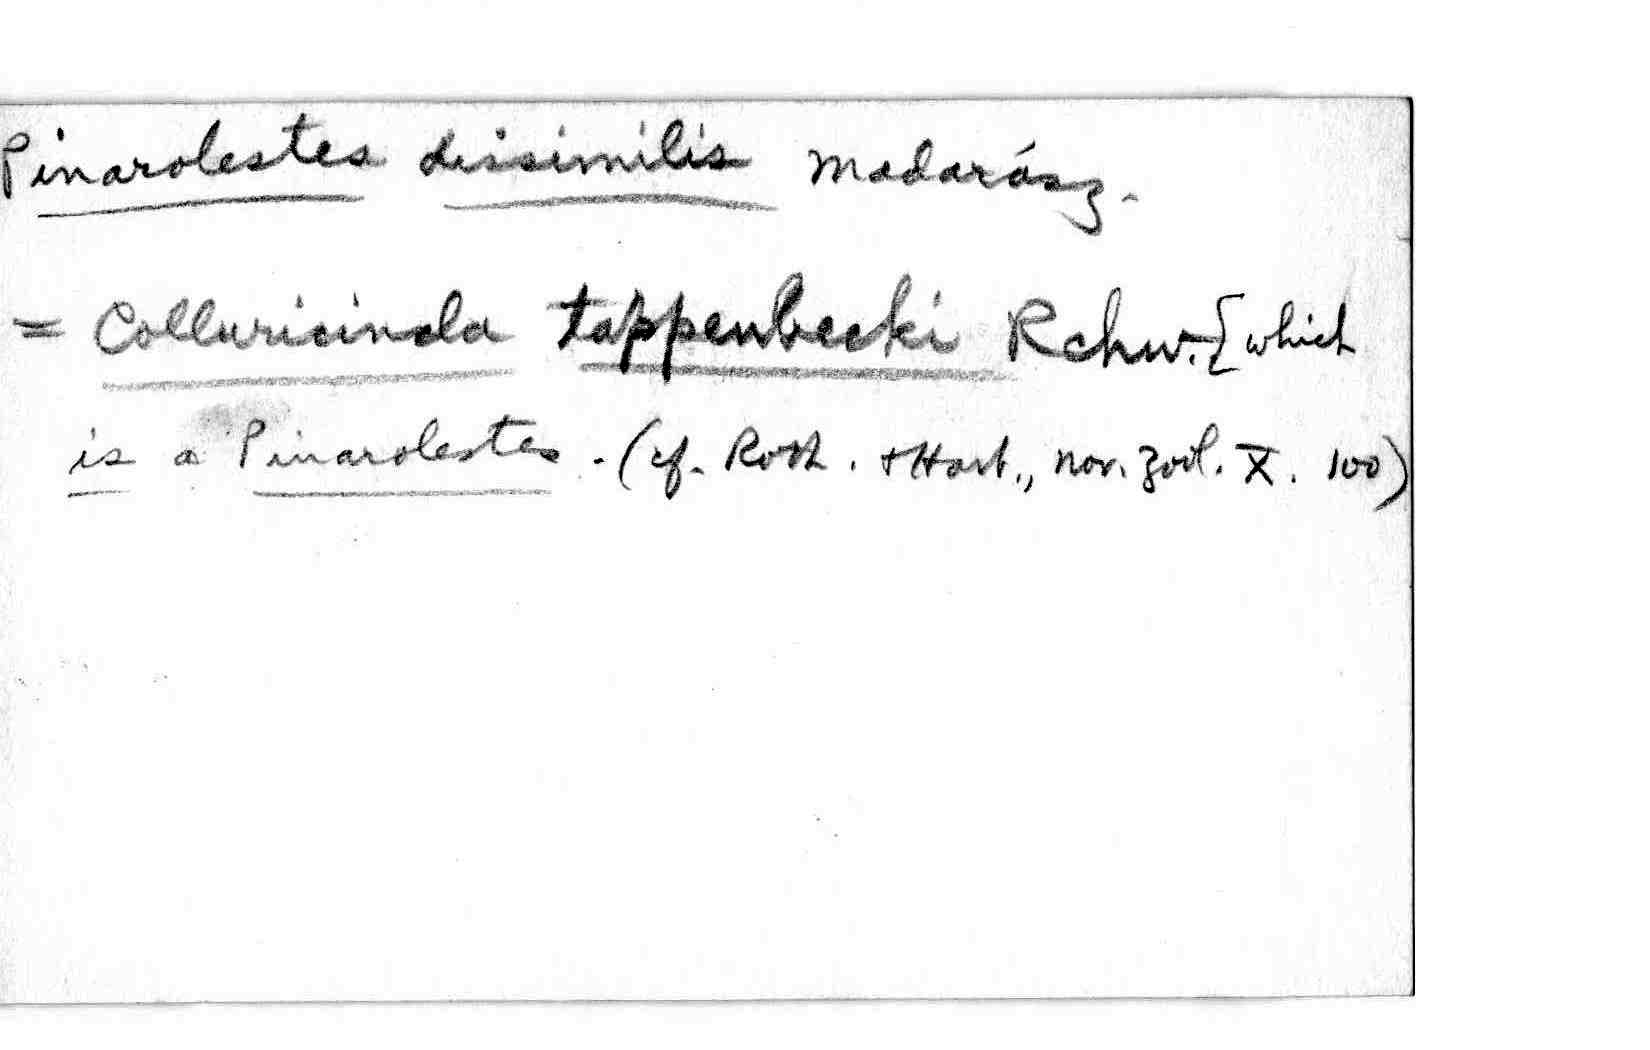 Pinarolestes dissimilis Madarász.
= Colluricincla tappenbecki Rchw. [which
is a Pinarolestes. (cf. Roth. + Hart., nov. Zool. X. 100)